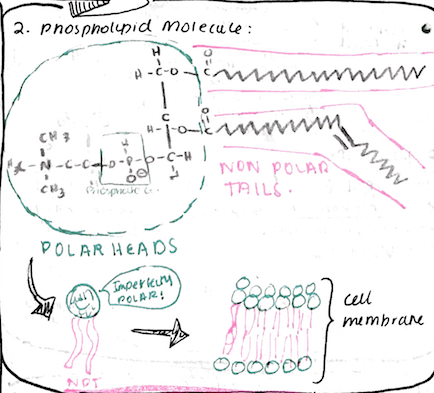 2. phospholipid molecule:
H
H-C-O-C
O
H
O-C
O
CH3
H3C-N-C-C-O-P-O-C-H
O
CH3
H
NON POLAR
TAILS.
POLAR HEADS
POLAR!
cell
membrane
NOT